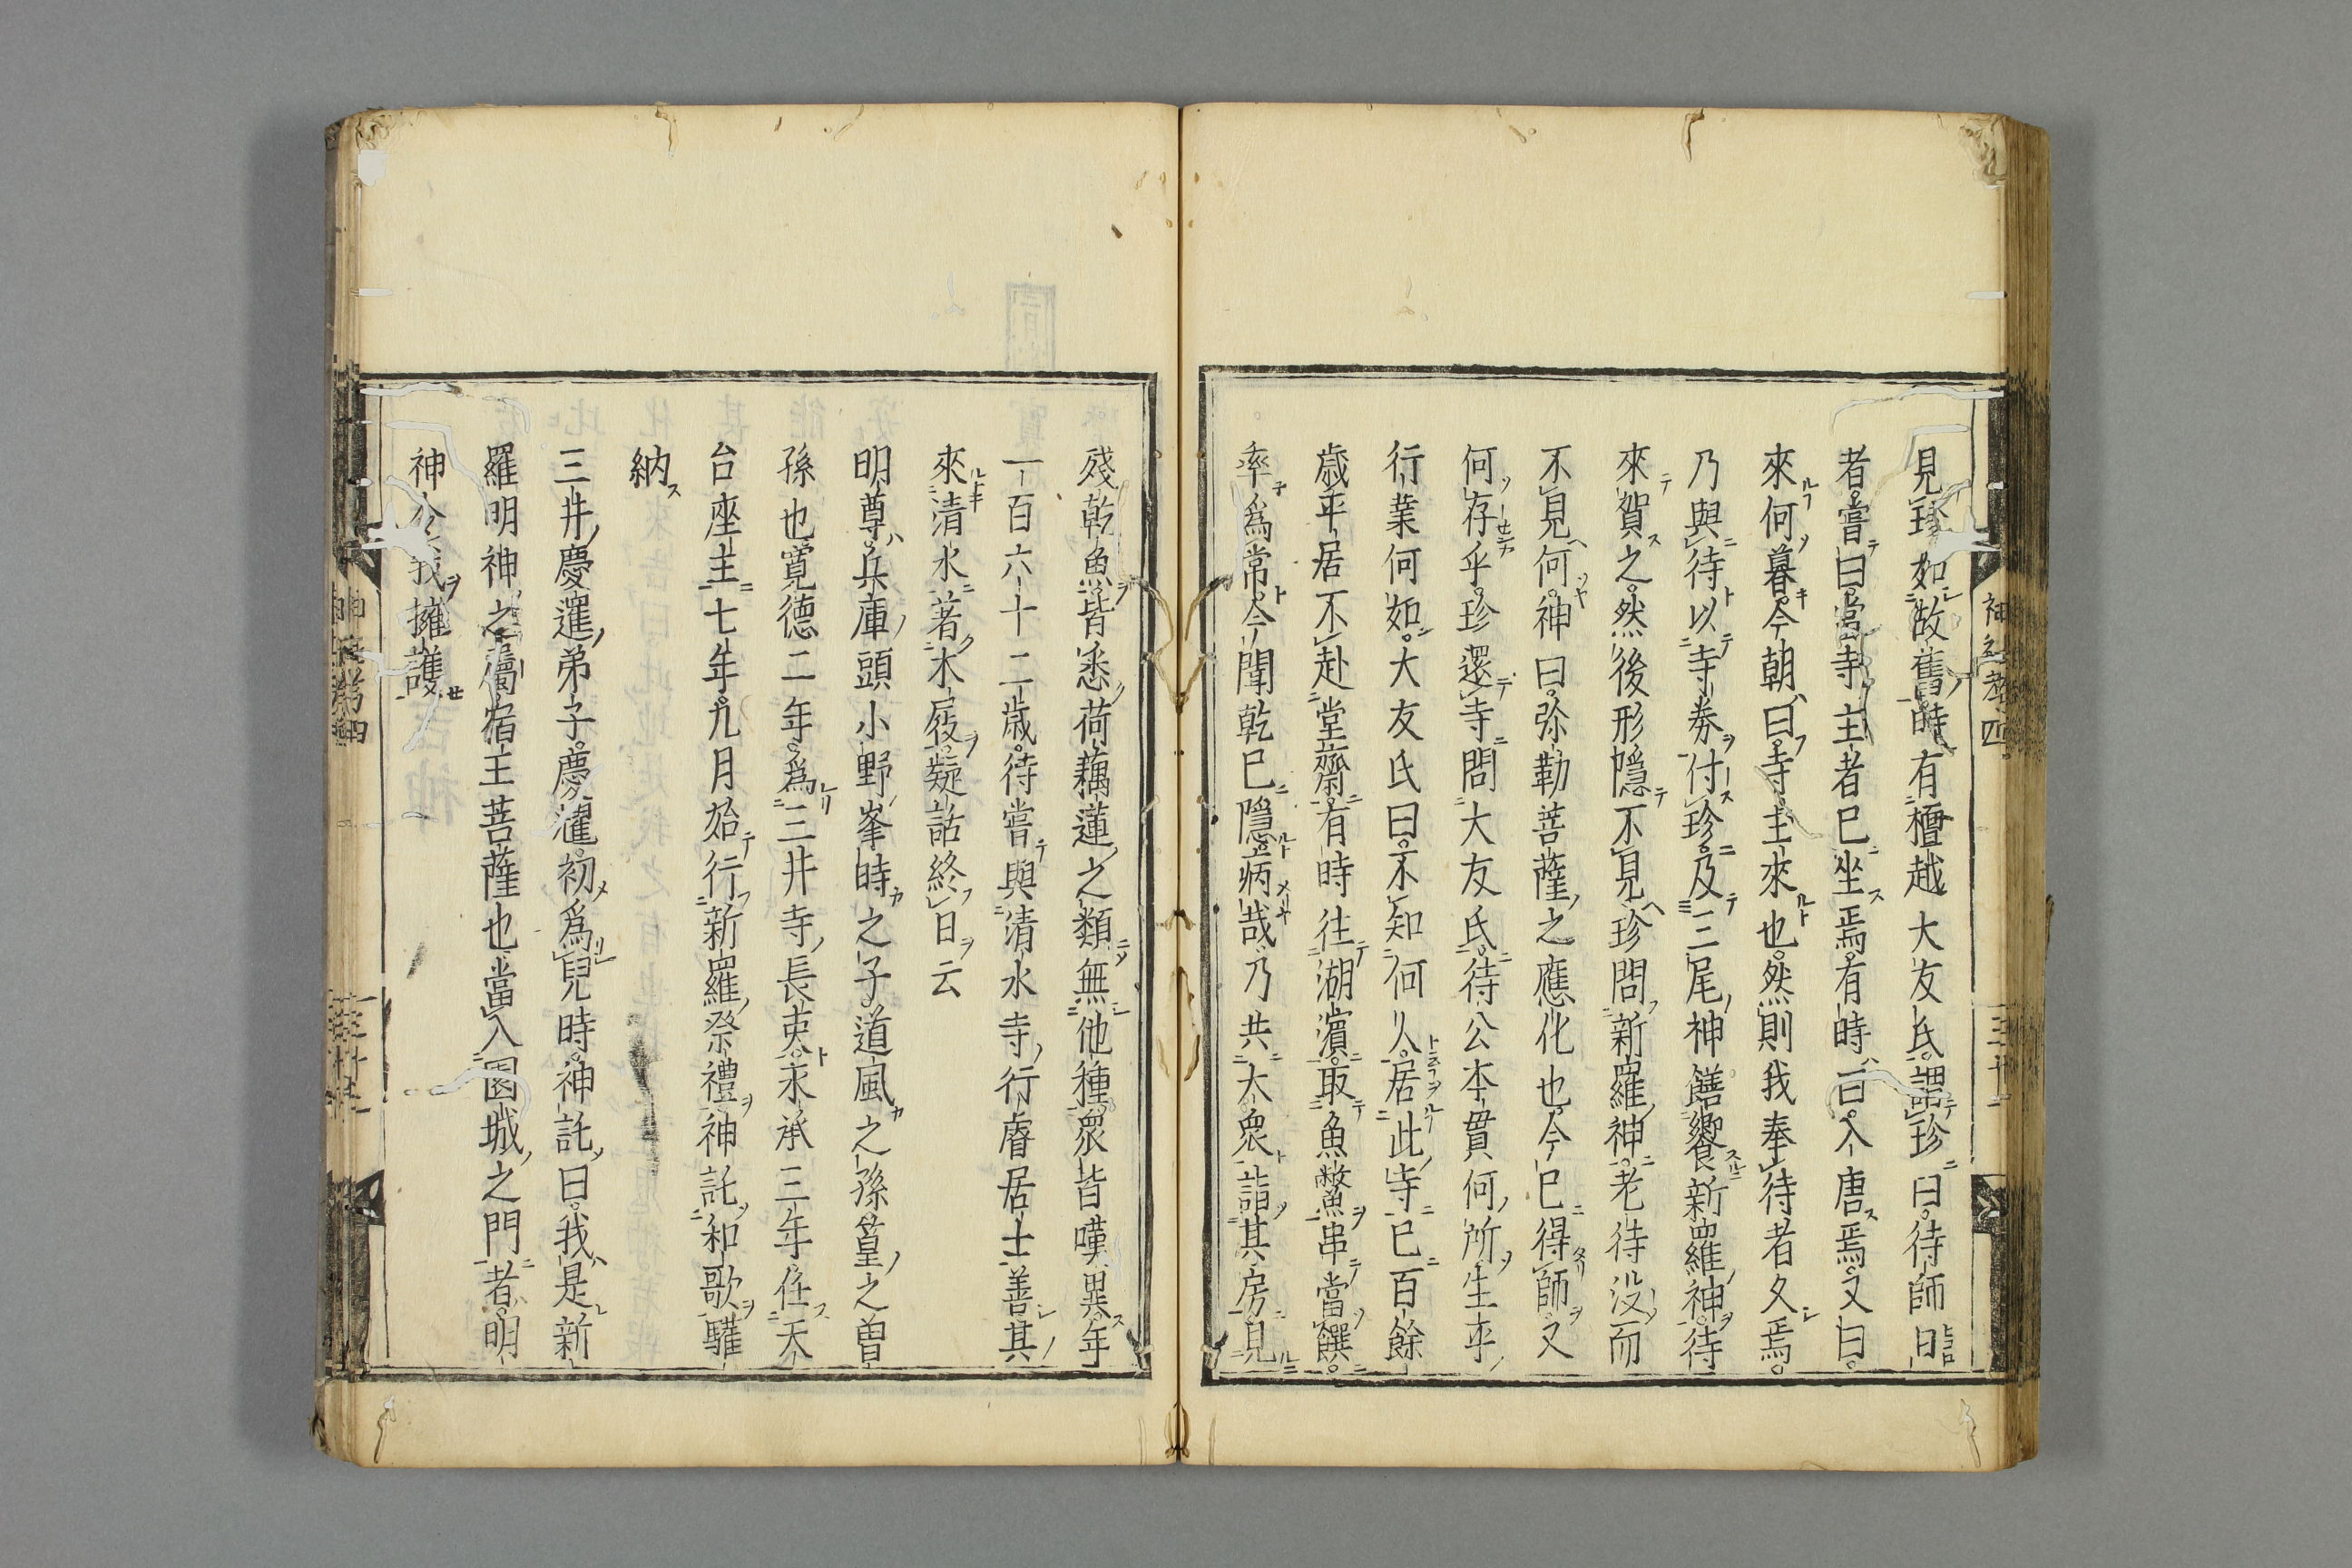 見珍如故舊時有檀越大友氏謂珍曰待師曰
者嘗曰當寺主者已坐焉有時曰入唐焉又曰
來何暮今朝曰寺主來也然則我奉待者久焉
乃與待以寺券付珍及三尾神饍饗新羅神待
來賀之然後形隱不見珍問新羅神老待沒而
不見何神曰弥勒菩薩之應化也今已得師又
何存乎珍還寺問大友氏待公本貫何所生乎
行業何如大友氏曰不知何人居此寺已百餘
歲平居不赴堂齋有時往湖濱取魚鱉串當饌
率爲常今聞乾已隱病哉乃共大衆詣其房見
殘乾魚皆悉荷藕蓮之類無他種衆皆嘆異年
一百六十二歲待嘗與清水寺行睿居士善其
來清水著木履疑詁終日云
明尊兵庫頭小野峯時之子道風之孫篁之曽
孫也寛德二年爲三井寺長吏永承三年任天
台座主七年九月始行新羅祭禮神託和歌驩
納
三井慶暹弟子慶濯初爲兒時神託曰我是新
羅明神之屬宿王菩薩也當入園城之門者明
神令我擁護